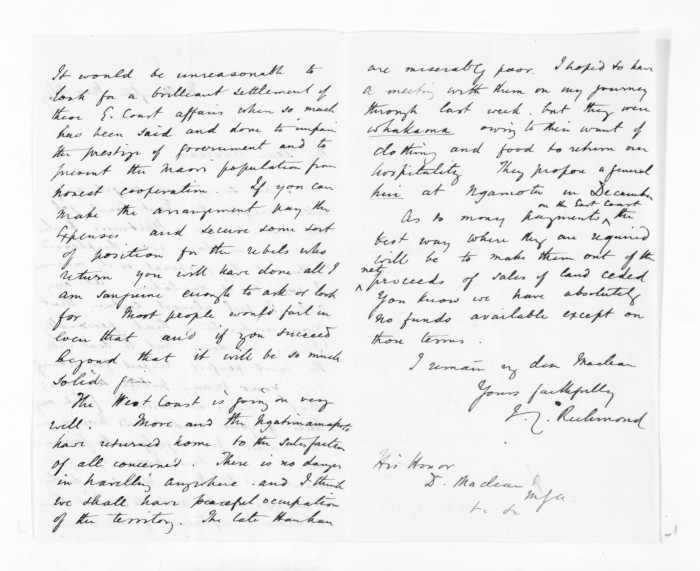 It would be unreasonable to
look for a brilliant settlement of
these E. Coast affairs when so much
has been said and done to impair
the prestige of government and to
prevent the Maori population from
honest cooperation. If you can
make the arrangement pay the
expenses and secure some sort
of position for the rebels who
return you will have done all I
am sanguine enough to ask or look
for. Most people would fail in
even that and if you succeed
beyond that it will be so much
solid gain.
The West Coast is going on very
well. More and the
have returned home to the satisfaction
of all concerned. There is no danger
in travelling anywhere and I think
we shall have peaceful occupation
of the territory. The late Hauhau
are miserably poor. I hoped to have
a meeting with them on my journey
through last week, but they were
whakama owing to their want of
clothing and food to return our
hospitality. They propose a general
hui at Ngamotu in December
on the East Coast
As to money payments ^ the
best way where they are required
will be to make them out of the
net
^ proceeds of sales of land ceded
You know we have absolutely
no funds available except on
those terms.
I remain my dear Maclean
Yours faithfully
J. C. Richmond
His Honor
D. Maclean